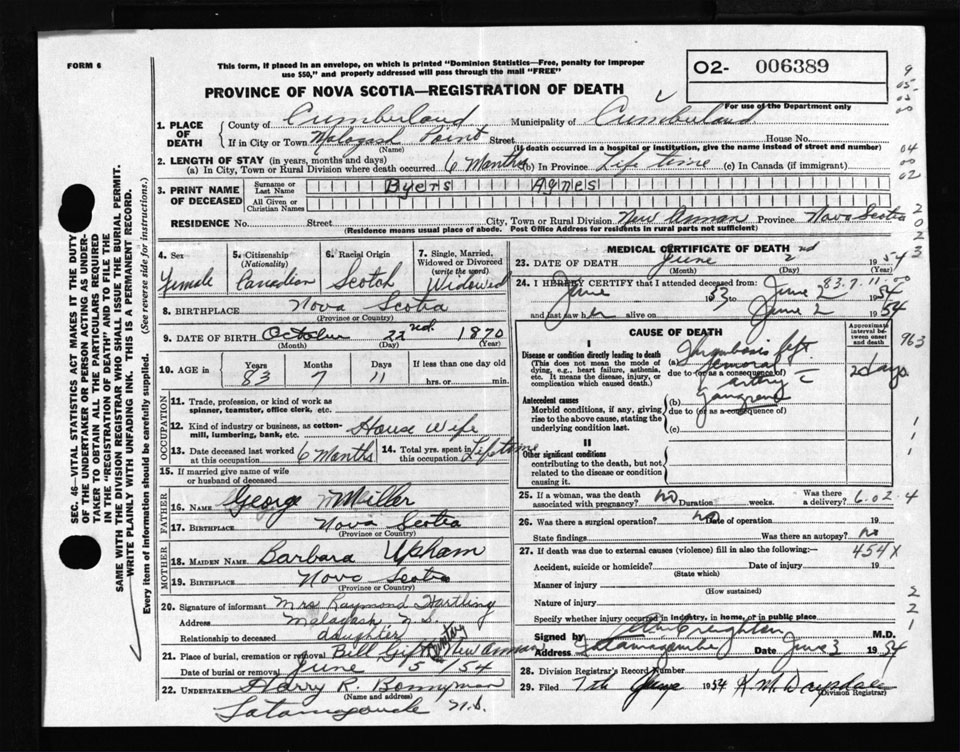 FORM 6
This form, if placed in an envelope, on which is printed "Dominion Statistics—Free, penalty for improper
use $50," and properly addressed will pass through the mail "FREE"
O2- 006389
PROVINCE OF NOVA SCOTIA—REGISTRATION OF DEATH
For use of the Department only
1. PLACE OF DEATH
County of Cumberland Municipality of Cumberland
If in City or Town Malagash Point Street House No.
(Name) (If death occurred in a hospital or institution, give the name instead of street and number)
2. LENGTH OF STAY (in years, months and days)
(a) In City, Town or Rural Division where death occurred 6 Months (b) In Province Life time (c) In Canada (if immigrant)
3. PRINT NAME OF DECEASED
Surname or Last Name Byers Agnes
All Given or Christian Names
RESIDENCE No. Street City, Town or Rural Division New Annan Province Nova Scotia
(Residence means usual place of abode. Post Office Address for residents in rural parts not sufficient)
4. Sex Female
5. Citizenship (Nationality) Canadian
6. Racial Origin Scotch
7. Single, Married, Widowed or Divorced (write the word) Widowed
8. BIRTHPLACE Nova Scotia
(Province or Country)
9. DATE OF BIRTH October 22nd 1870
(Month) (Day) (Year)
10. AGE in Years 83 Months 7 Days 11 If less than one day old hrs. or min.
OCCUPATION
11. Trade, profession, or kind of work as spinner, teamster, office clerk, etc.
12. Kind of industry or business, as cotton-mill, lumbering, bank, etc. House Wife
13. Date deceased last worked at this occupation 6 Months
14. Total yrs. spent in this occupation Lifetime
15. If married give name of wife or husband of deceased
FATHER
16. NAME George Miller
17. BIRTHPLACE Nova Scotia
(Province or Country)
MOTHER
18. MAIDEN NAME Barbara Upham
19. BIRTHPLACE Nova Scotia
(Province or Country)
20. Signature of informant Mrs Raymond Hartling
Address Malagash N.S.
Relationship to deceased daughter
21. Place of burial, cremation or removal Bill Gift Cemetery New Annan
Date of burial or removal June 5/54
22. Undertaker Harry R. Bonnyman
(Name and address)
Tatamagouche N.S.
MEDICAL CERTIFICATE OF DEATH
23. DATE OF DEATH June 2nd 1954
(Month) (Day) (Year)
83.7.11
24. I HEREBY CERTIFY that I attended deceased from:
June 1953 to June 2 1954
and last saw her alive on June 2 1954
CAUSE OF DEATH
Approximate interval between onset and death
I
Disease or condition directly leading to death
(This does not mean the mode of dying, e.g., heart failure, asthenia, etc. It means the disease, injury, or complication which caused death.)
(a) Thrombosis left femoral artery c̄ gangrene
2 days
due to (or as a consequence of)
Antecedent causes
Morbid conditions, if any, giving rise to the above cause, stating the underlying condition last.
(b)
due to (or as a consequence of)
(c)
II
Other significant conditions
contributing to the death, but not related to the disease or condition causing it.
25. If a woman, was the death associated with pregnancy? no Duration weeks. Was there a delivery? 6.02.4
26. Was there a surgical operation? no Date of operation 19
State findings Was there an autopsy? no
27. If death was due to external causes (violence) fill in also the following:— 454X
Accident, suicide or homicide? Date of injury 19
(State which)
Manner of injury
(How sustained)
Nature of injury
Specify whether injury occurred in industry, in home, or in public place
Signed by Creighton M.D.
Address Tatamagouche Date June 3 1954
28. Division Registrar's Record Number
29. Filed 7th June 1954 K. M. Drysdale
(Division Registrar)
SEC. 46—VITAL STATISTICS ACT MAKES IT THE DUTY
OF THE UNDERTAKER OR PERSON ACTING AS UNDER-
TAKER TO OBTAIN ALL THE PARTICULARS REQUIRED
IN THE "REGISTRATION OF DEATH" AND TO FILE THE
SAME WITH THE DIVISION REGISTRAR WHO SHALL ISSUE THE BURIAL PERMIT.
WRITE PLAINLY WITH UNFADING INK. THIS IS A PERMANENT RECORD.
Every item of information should be carefully supplied. (See reverse side for instructions.)
9
05
04
00
02
2
0
2
2
3
963
1
1
2
2
1